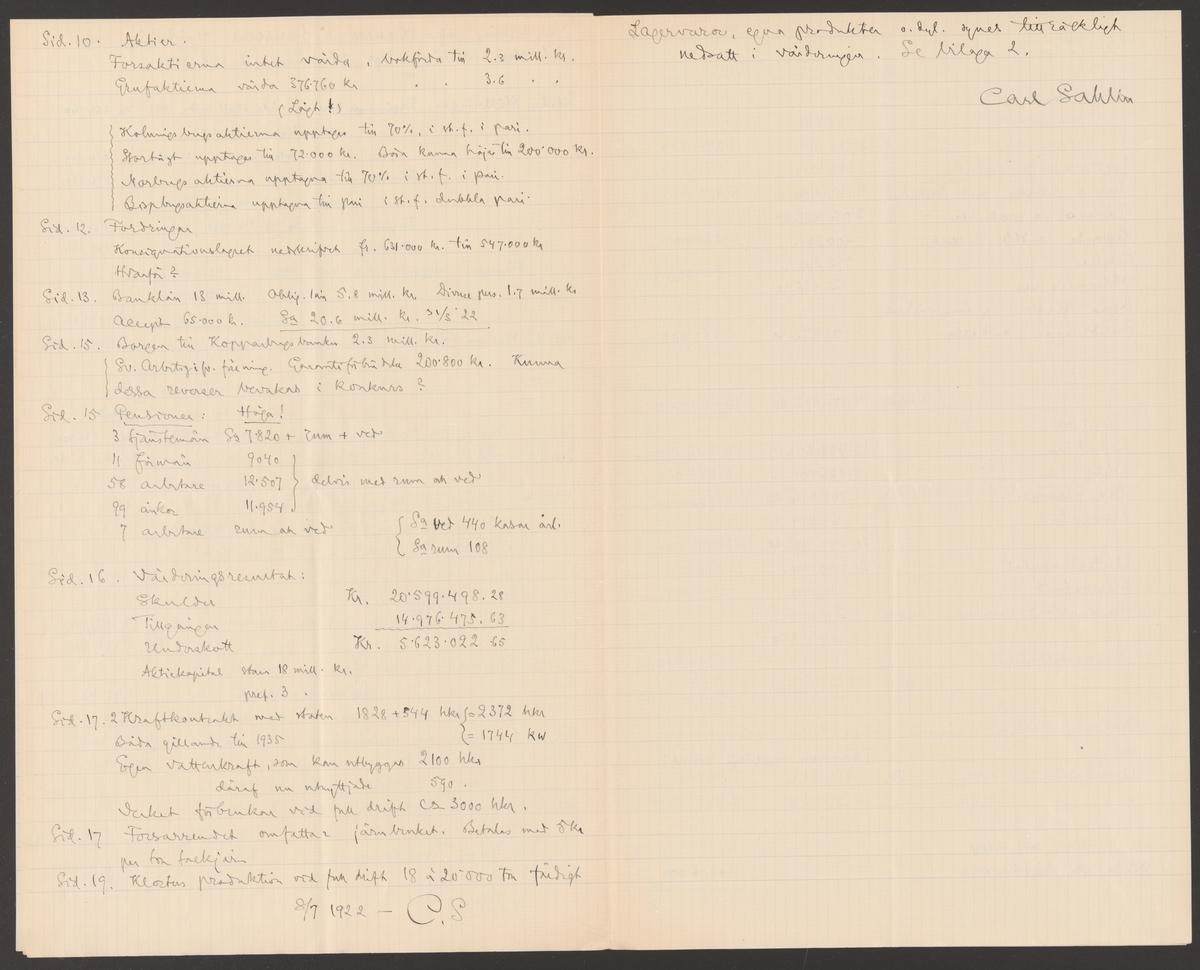 Sid. 10. Aktier.
Forsaktierna intet värda, bokförda till 2.3 mill. kr.
Grufaktierna värda 376.760 kr . . 3.6 . .
(Lågt!)
Kolningsbugsaktierna upptagas till 70%, i st. f. i pari.
upptages till 72.000 kr. Böra kunna höjas till 200.000 kr.
Norbergs aktierna upptagna till 70% i st. f. i pari.
aktierna upptagna till pari i st. f. dubbla pari.
Sid. 12. Fordringar
Konsignationslagret nedskrifvet fr. 631.000 kr. till 547.000 kr
Hvarför?
Sid. 13. Banklån 13 mill. Oblig. lån 5.8 mill. kr. Diverse pers. 1.7 mill. kr
Accept 65.000 kr. Sa 20.6 mill. kr. 31/5 '22
Sid. 15. Borgen till Kopparbergs banken 2.3 mill. kr.
Sv. Arbetsgifv. förening. Garantiförbindelse 200.800 kr. Kunna
dessa reverser bevakas i konkurs?
Sid. 15 Pensioner: Höga!
3 tjänstemän Sa 7.820 + rum + ved
11 förmän 9040
58 arbetare 12.507 } delvis med rum och ved
99 änkor 11.954
7 arbetare rum och ved { Sa ved 440 kastar årl.
Sa rum 108
Sid. 16. Värderingsresultat:
Skulder Kr. 20.599.498.28
Tillgångar 14.976.475.63
Underskott Kr. 5.623.022 65
Aktiekapital stam 18 mill. kr.
pref. 3 .
Sid. 17. 2 Kraftkontrakt med staten 1828 + 544 hkr { = 2372 hkr
Båda gällande till 1935 { = 1744 kw
Egen vattenkraft, som kan utbyggas 2100 hkr
däraf nu utnyttjade 590 .
Verket förbrukar vid full drift ca 3000 hkr.
Sid. 17 Forsarrendet omfattar järnbruket. Betalas med 5 kr
per ton tackjärn
Sid. 19. Klosters produktion vid full drift 18 à 20.000 ton färdigt
8/7 1922 — C. S
Lagervaror, egna produkter o. dyl. synes tillräckligt
nedsatt i värderingen. Se bilaga 2.
Carl Sahlin